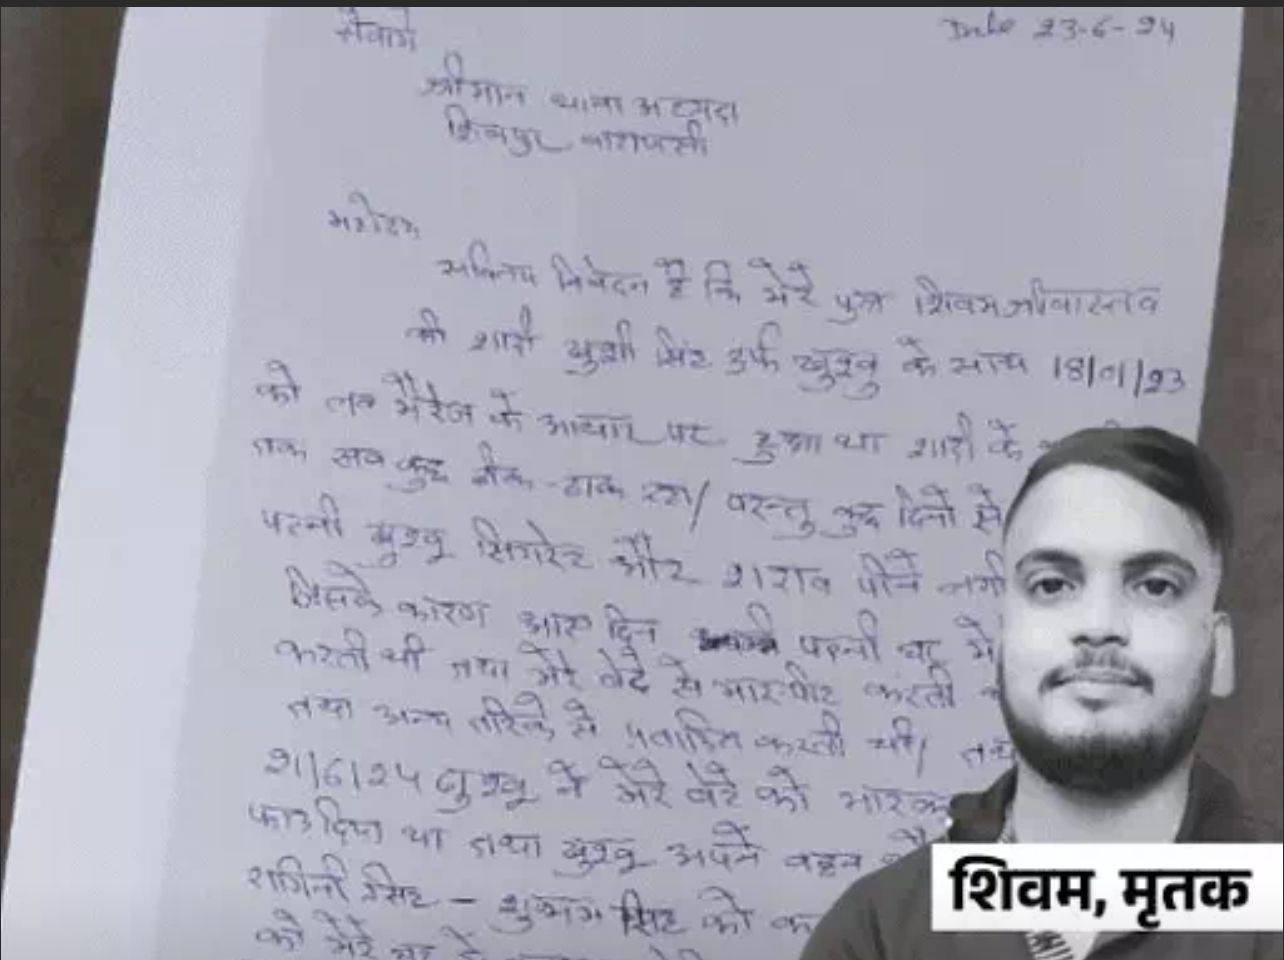 सेवामें
Date 23-6-24
श्रीमान थाना अध्यक्ष
शिवपुर वाराणसी
महोदय
सविनय निवेदन है कि मेरे पुत्र शिवम श्रीवास्तव
की शादी खुशी सिंह उर्फ खुश्बु के साथ 18/01/23
को लव मैरेज के आधार पर हुआ था शादी के
तक सब कुछ ठीक-ठाक रहा/ परन्तु कुछ दिनों से
पत्नी खुश्बू सिगरेट और शराब पीने लगी
जिसके कारण आए दिन पत्नी घर में
करती थी तथा मेरे बेटे से मारपीट करती
तथा अन्य तरिके से प्रताडित करती थी/ तथा
21/6/24 खुश्बू ने मेरे बेटे को मारकर
फाड दिया था तथा खुश्बू अपने बहन
रागिनी सिंह - शुभम सिंह को
को मेरे घर
शिवम, मृतक